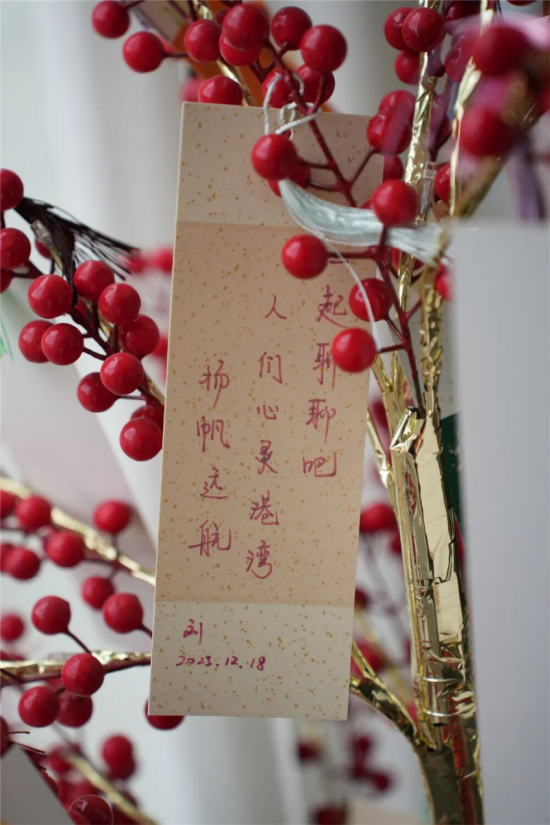 起聊聊吧
人们心灵港湾
扬帆远航
刘
2025.12.18